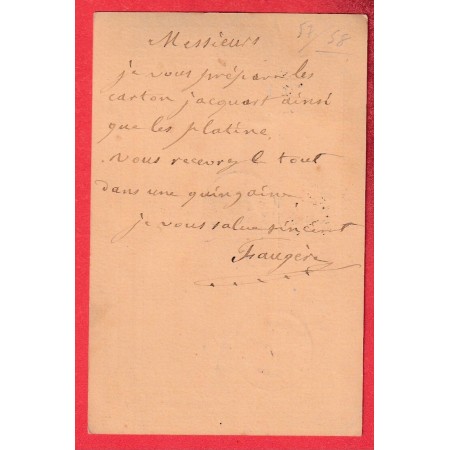 57 58
Messieurs
je vous prépare les
carton jacquart ainsi
que les platine
vous recevrez le tout
dans une quinzaine
je vous salue sincent
Faugère